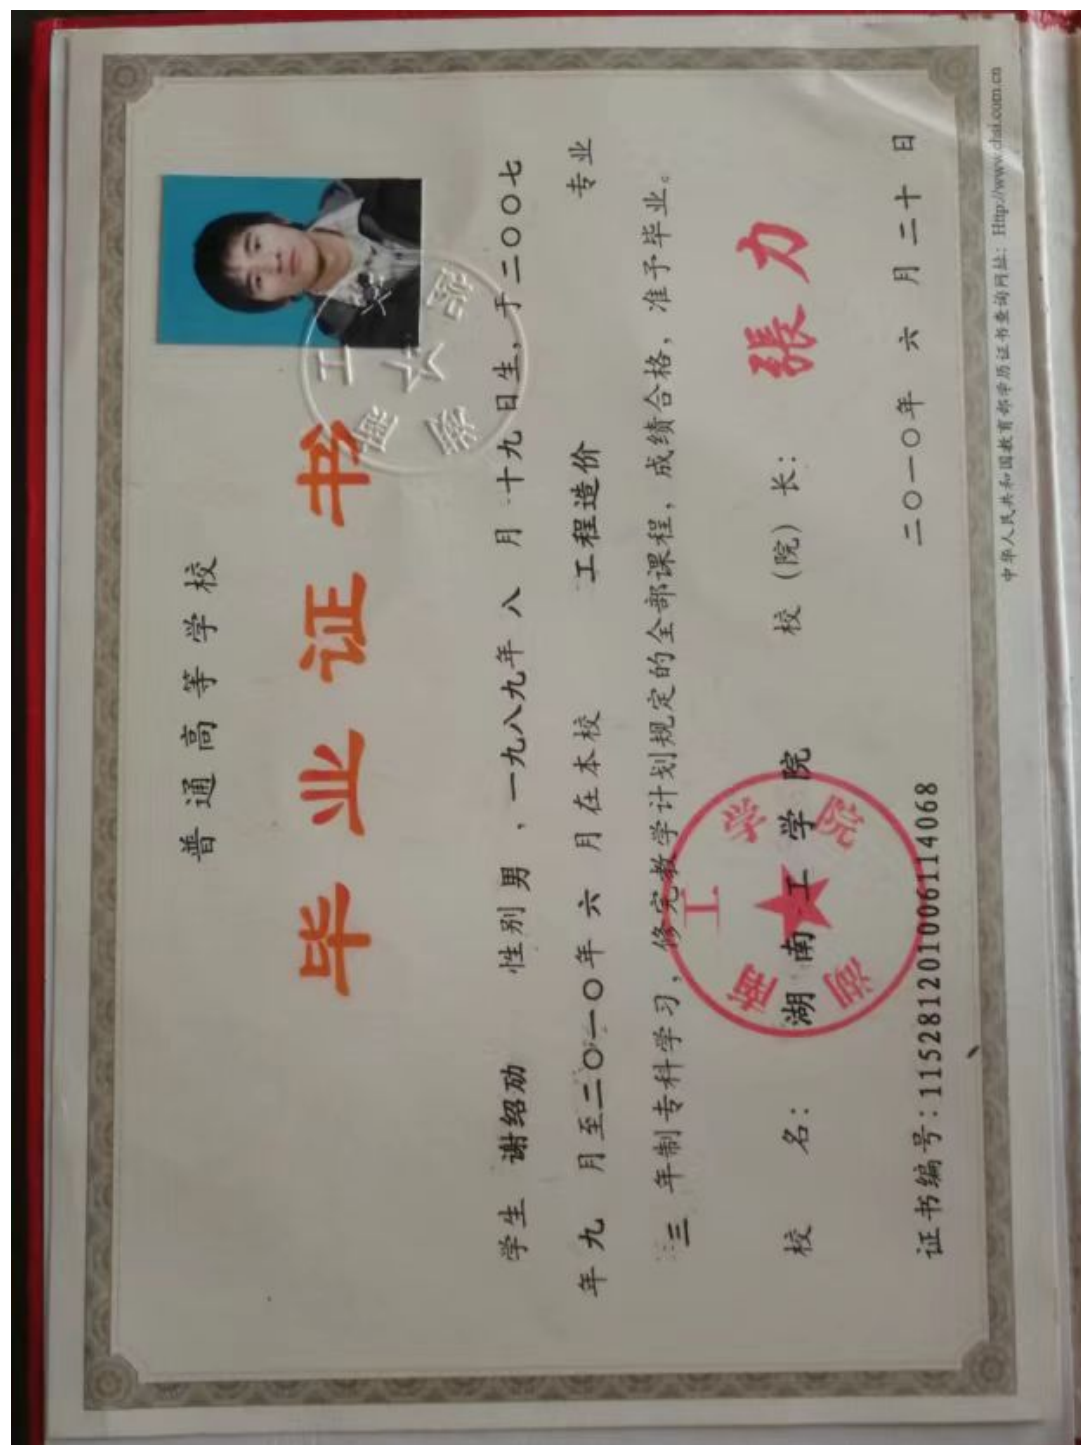 普通高等学校
毕业证书
学生 谢绍劢 性别男，一九八九年八月十九日生，于二〇〇七
年九月至二〇一〇年六月在本校 工程造价 专业
三年制专科学习，修完教学计划规定的全部课程，成绩合格，准予毕业。
校名：湖南工学院 校（院）长：張力
湖南工学院
湖南工学院
证书编号：115281201006114068 二〇一〇年六月二十日
中华人民共和国教育部学历证书查询网址：Http://www.chsi.com.cn